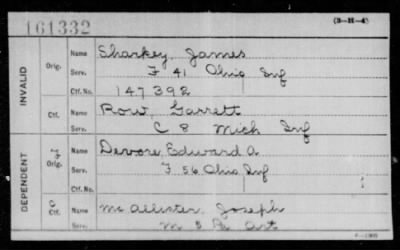 161332
(3-H-4)
INVALID
Orig.
Name Sharkey, James
Serv. F 41 Ohio Inf
Ctf. No. 147392
Ctf.
Name Row, Garrett
Serv. C 8 Mich Inf
DEPENDENT
Orig.
Name Devore, Edward A
Serv. F 56 Ohio Inf
Ctf. No.
C
Ctf.
Name McAllister, Joseph
Serv. M 5 Pa Art